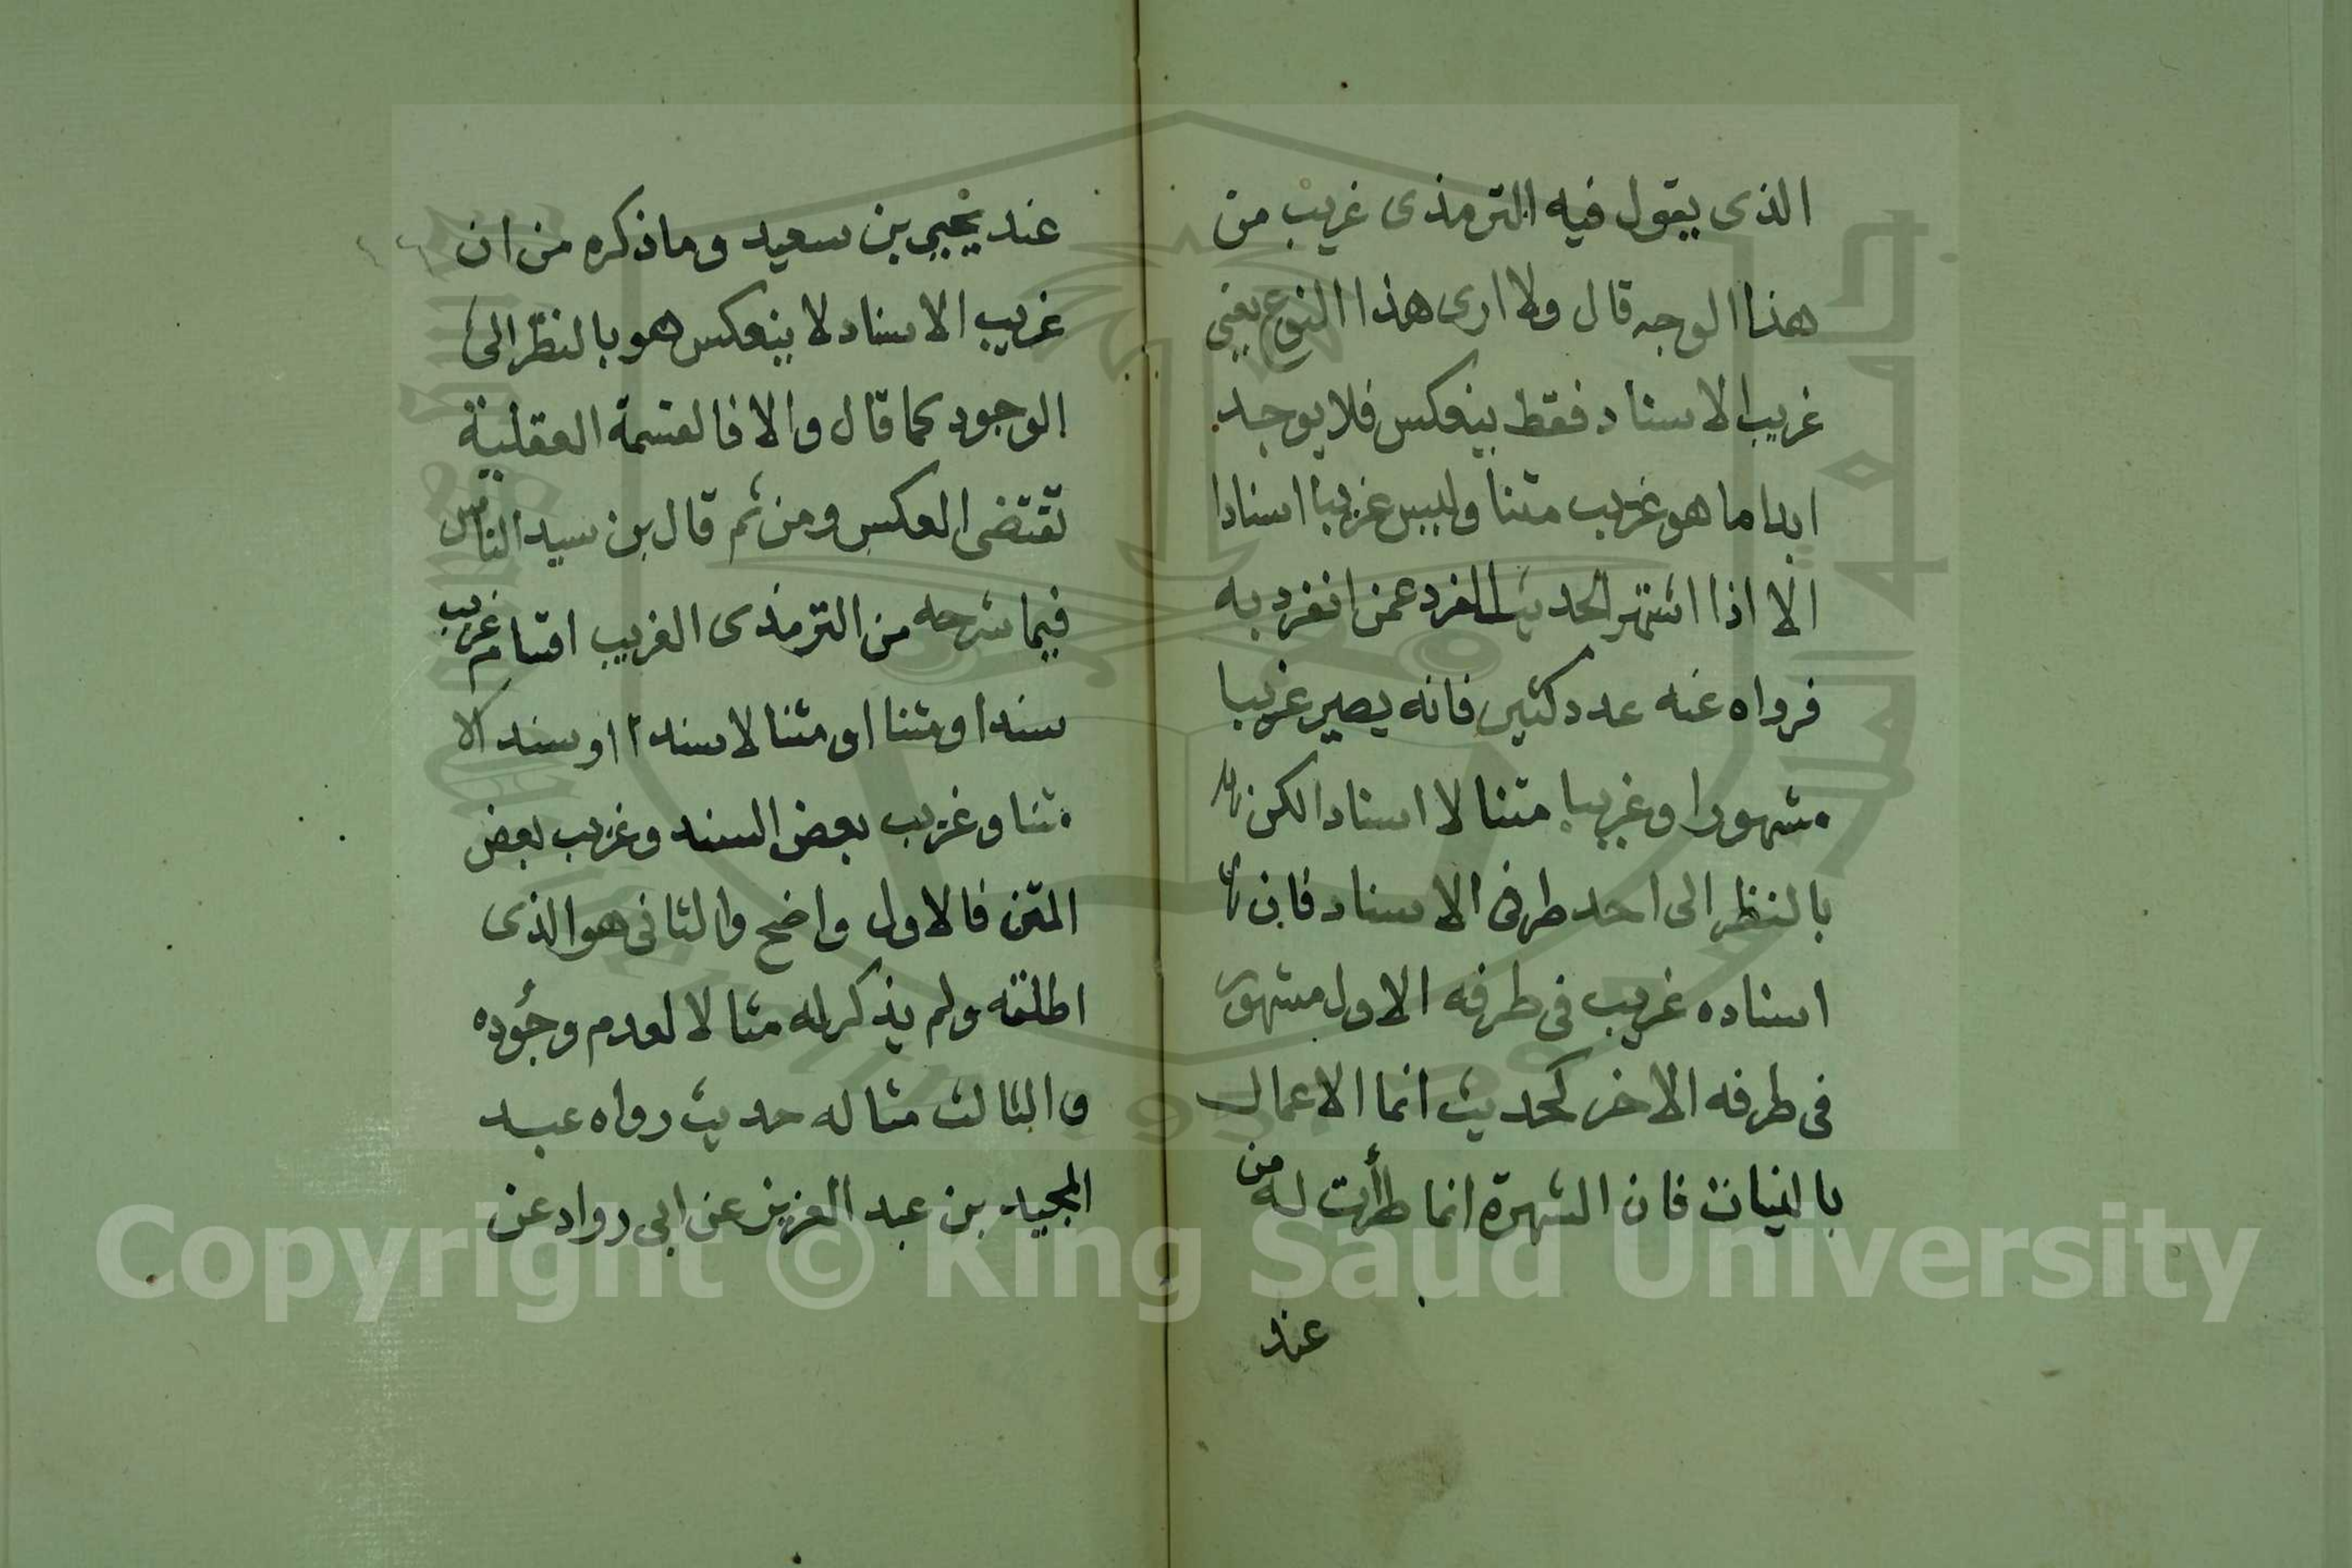 الذى يقول فيه الترمذى غريب من
هذا الوجه قال ولا ارى هذا النوع يعنى
غريب الاسناد فقط ينعكس فلا يوجد
ابدا ما هو غريب متنا وليس غريبا اسنادا
الا اذا اشتهر الحديث الفرد عمن انفرد به
فرواه عنه عدد كثير فانه يصير غريبا
مشهورا وغريبا متنا لا اسنادا لكن
بالنظر الى احد طرفى الاسناد فان
اسناده غريب فى طرفه الاول مشهور
فى طرفه الاخر كحديث انما الاعمال
بالنيات فان الشهرة انما طرأت له من
عند
عند يحيى بن سعيد وما ذكره من ان
غريب الاسناد لا ينعكس هو بالنظر الى
الوجود كما قال والا فالقسمة العقلية
تقتضى العكس ومن ثم قال بن سيد الناس
فيما شرحه من الترمذى الغريب اقسام غريب
سندا ومتنا او متنا لا سندا او سندا لا
متنا وغريب بعض السند وغريب بعض
المتن فالاول واضح والثانى هو الذى
اطلقه ولم يذكر له مثالا لعدم وجوده
والثالث مثاله حديث رواه عبد
المجيد بن عبد العزيز عن ابى رواد عن
Copyright © King Saud University